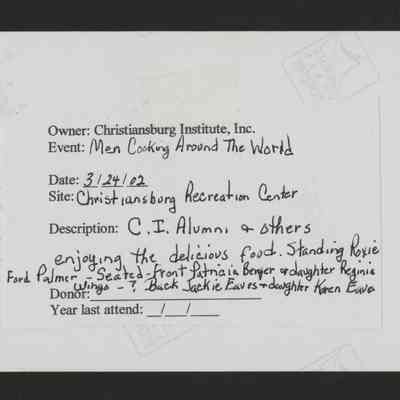 Owner: Christiansburg Institute, Inc.
Event: Men Cooking Around The World
Date: 3/24/02
Site: Christiansburg Recreation Center
Description: C.I. Alumni & others
enjoying the delicious food. Standing Roxie
Ford Palmer - Seated - front Patricia & daughter Reginia
Wings - ? Back Jackie Eaves & daughter Karen Eave
Donor:
Year last attend: __/__/____